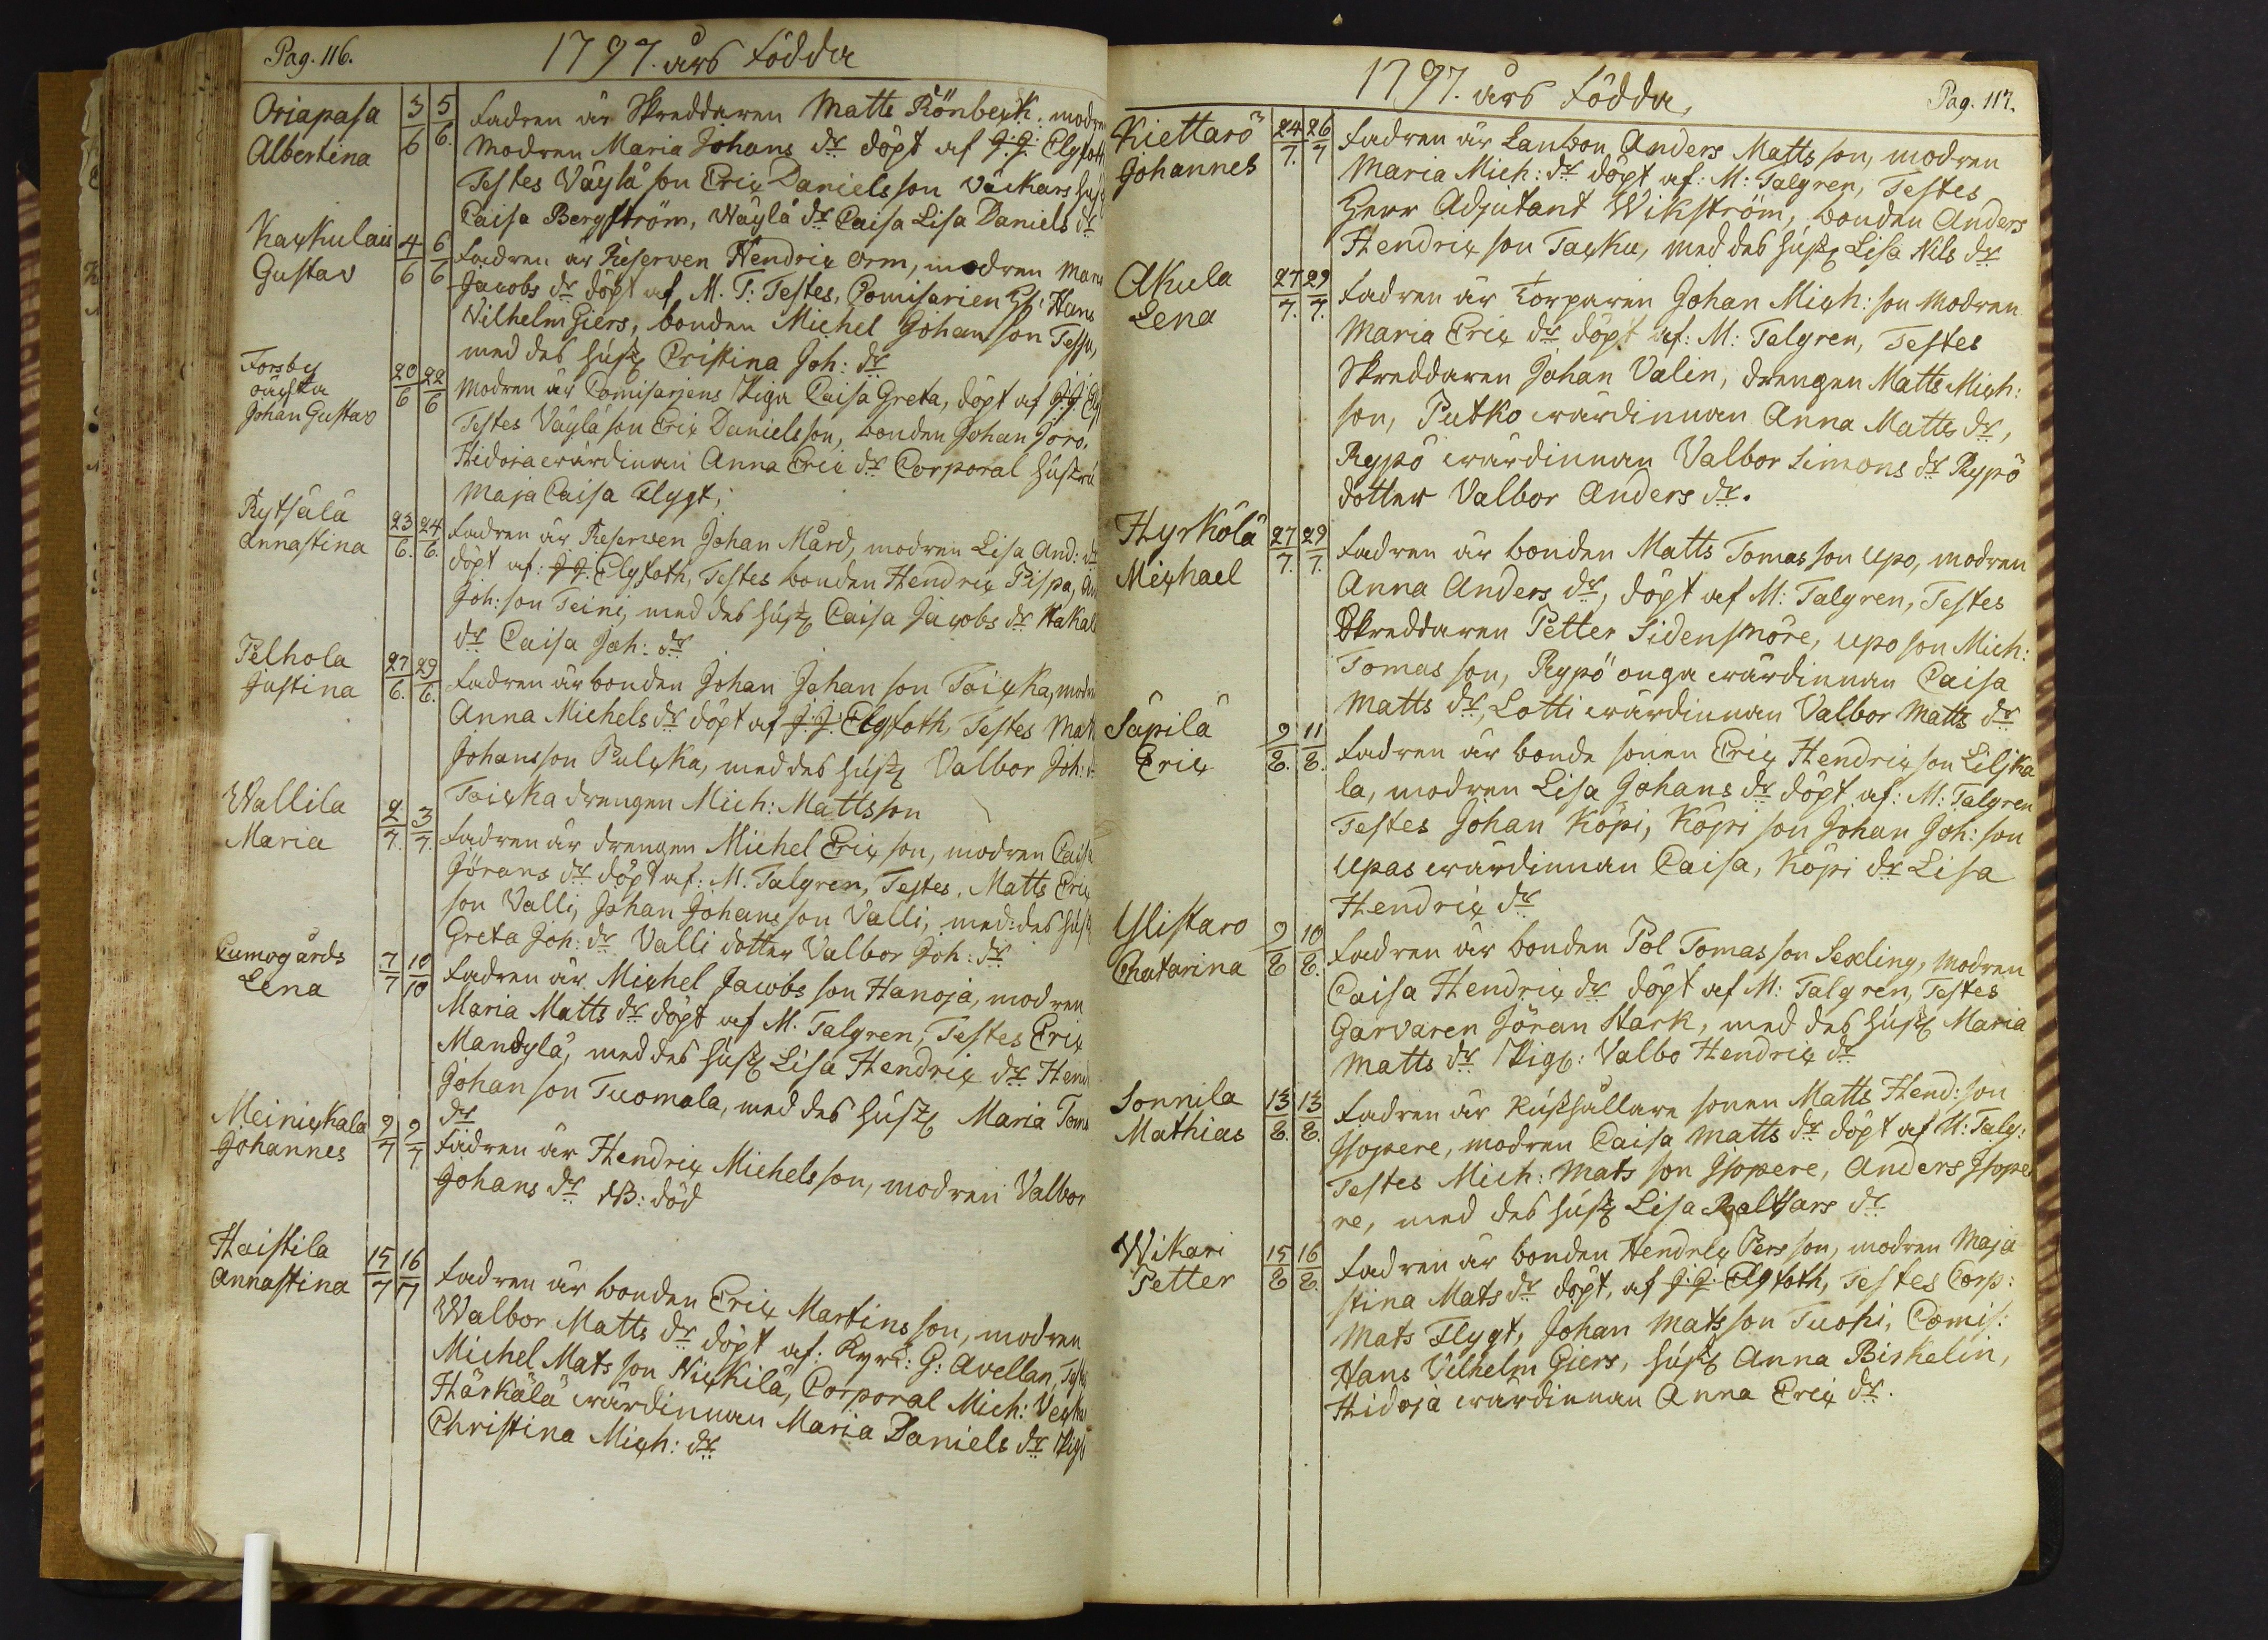 Pag. 116.
1797. års födda
Oriapasa 3/6 5/6. fadren är Skreddaren Matts Rönbeck. modre
Albertina Modren Maria Johans dr döpt af J.J. Elgfoth
Testes Väylä son Eric Danielsson
Caisa Bergström, Wäylä dr Caisa Lisa Daniels dr
Kaykulais 4/6 6/6 fadren är Reserven Hendric Orm, modren Mari
Gustav Jacobs dr döpt af M. T: Testes, Comisarien Hans
Vilhelm Giers, bonden Michel Johansson
med des hust Cristina Joh: dr
Forsby
oäcta 20/6 22/6 Modren är Comisarjens Piga Caisa Greta, döpt af J.J. Elg
Johan Gustav
Testes Väylä son Eric Danielsson, bonden Johan Joro.
Hidoja wärdinnan Anna Eric dr Corporal Hustru
Maja Caisa Flygt.
Rytsälä 23/6. 24/6. fadren är Reserven Johan Mård, modren Lisa And: dr
Annastina döpt af: J.J. Elgfoth, Testes bonden Hendric Pispa, An
Joh: son Teine, med des hust Caisa Jacobs dr Kakal
dr Caisa Joh: dr
Pelhola 27/6. 29/6. fadren är bonden Johan Johan son Toicka, mod
Justina Anna Michels dr döpt af J.J. Elgfoth, Testes Mat
Johansson Pulcka, med des hust Valbor Joh: d
Toicka drengen Mich: Mattsson
Wallila 2/7. 3/7. fadren är drengen Michel Eric son, modren Caisa
Maria Jörans dr döpt af: M. Talgren, Testes, Matts Eric
son Valli, Johan Johans son Valli, med: des hust
Greta Joh: dr Valli dotter Valbor Joh: dr
Cumogårds 7/7 10/10 fadren är Michel Jacobs son Hanoja, modren
Lena Maria Matts dr döpt af M. Talgren, Testes Eric
Mandylä, med des hust Lisa Hendric dr Hend
Johan son Tuomola, med des hust Maria Tom
dr
Meinickala 9/7 9/7 fadren är Hendric Michelsson, modren Valbor
Johannes Johans dr NB: död
Haistila 15/7 16/7 fadren är bonden Eric Martins son, modren
Annastina Walbor Matts dr döpt af: Kyrc: G: Avellan,
Michel Mats son Nickilä, Corporal Mich:
Härkälä wärdinnan Maria Daniels dr Pig
Christina Mich: dr
1797. års födda,
Pag. 117.
Kiettarö 24/7. 26/7 fadren är Landbon Anders Matts son, modren
Johannes Maria Mich: dr döpt af: M: Talgren, Testes
Herr Adjutant Wikström, bonden Anders
Hendric son Tacku, med des hust Lisa Nils dr
Akula 27/7. 29/7. fadren är Torparen Johan Mich: son Modren
Lena Maria Eric dr döpt af: M: Talgren, Testes
Skreddaren Johan Valin, drengen Matts Mich:
son, Putko wärdinnan Anna Matts dr,
Rypö wärdinnan Valbor Simons dr Rypö
dotter Valbor Anders dr.
Hyrkölä 27/7. 29/7. fadren är bonden Matts Tomas son Upo, modren
Michael Anna Anders dr, döpt af M: Talgren, Testes
Skreddaren Petter Sidensnöre, Upo son Mich:
Tomas son, Rypö onga wärdinnan Caisa
Matts dr, Lotti wärdinnan Valbor Matts dr
Säpilä 9/8. 11/8. fadren är bonde sonen Eric Hendric son Liljka
Eric la, modren Lisa Johans dr döpt af: M: Talgren
Testes Johan Köpi, Köpi son Johan Joh: son
Upas wärdinnan Caisa, Köpi dr Lisa
Hendric dr
Ylistaro 9/8 10/8. fadren är bonden Pol Tomas son Sexling, modren
Chatarina Caisa Hendric dr döpt af M: Talgren, Testes
Garvaren Jöran Stark, med des hust Maria
Matts dr Pig: Valbo Hendric dr
Sonnila 13/8. 13/8. fadren är Rusthållare sonen Matts Hend: son
Mathias Isopere, modren Caisa Matts dr döpt af M: Talg:
Testes Mich: Mats son Isopere, Anders Isope
re, med des hust Lisa Baltsars dr
Wikari 15/8 16/8. fadren är bonden Hendric Pers son, modren Maja
Petter stina Mats dr döpt, af J.J. Elgfoth, Testes Corp:
Mats Flygt, Johan Mats son Tuohi, Comis:
Hans Vilhelm Giers, hust Anna Birkelin,
Hidoja wärdinnan Anna Eric dr.